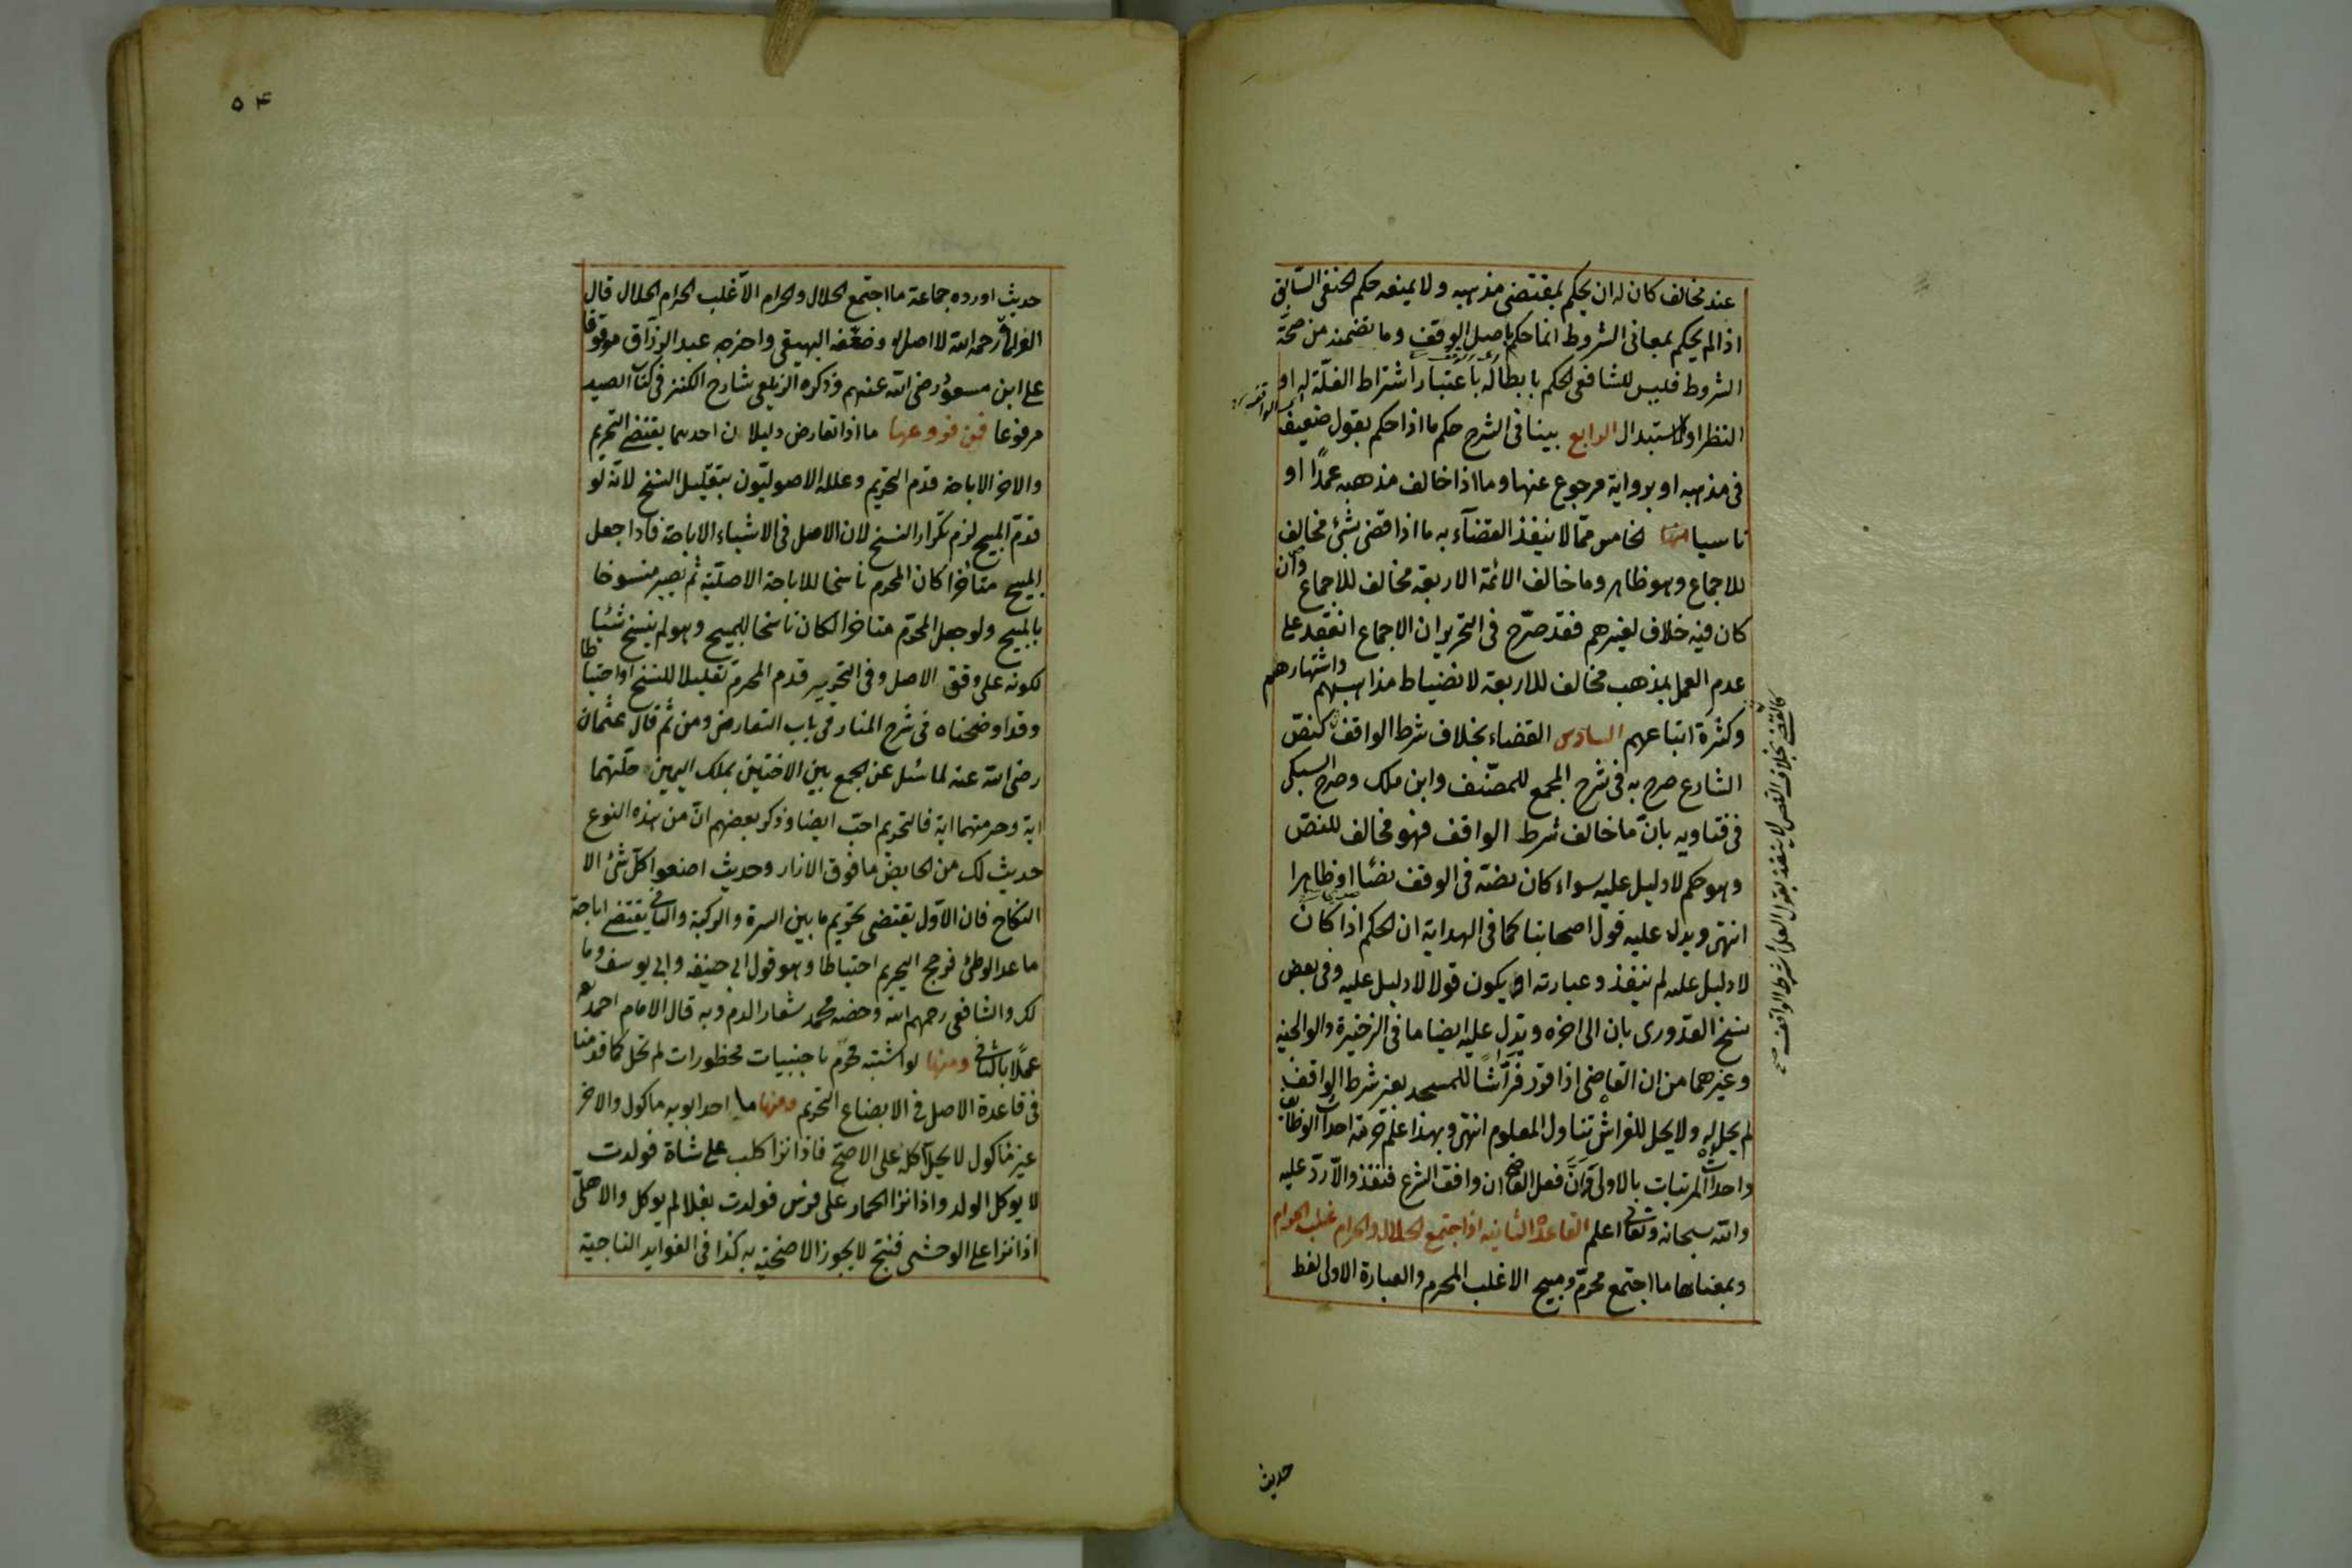 عند مخالف كان له ان يحكم بمقتضى مذهبه ولا يمنعه حكم الحنفى السّابق
اذ الم يحكم بمعانى الشروط انما حكم باصل الوقف وما تضمنه من صحّة
الشروط فليس للشافعى الحكم بابطاله باعتبار اشتراط الغلّة له او
النظر او الاستبدال الرابع بينا فى الشرح حكم ما اذا حكم بقول ضعيف
فى مذهبه او برواية مرجوع عنها وما اذا خالف مذهبه عمدًا او
ناسيا الخامس ممّا لا ينفذ القضآء به ما اذا قضى بشئ مخالف
للاجماع وهو ظاهر وما خالف الائمة الاربعة مخالف للاجماع وان
كان فيه خلاف لغيرهم فقد صرّح فى التحرير ان الاجماع انعقد على
عدم العمل بمذهب مخالف للاربعة لانضباط مذاهبهم واشتهارهم
وكثرة اتباعهم السادس القضاء بخلاف شرط الواقف كنصّ
الشارع صرح به فى شرح المجمع للمصنّف وابن ملك وصرح السبكى
فى فتاويه بانّ ما خالف شرط الواقف فهو مخالف للنصّ
وهو حكم لا دليل عليه سواء كان نصّه فى الوقف نصّا او ظاهرا
انتهى ويدل عليه قول اصحابنا كما فى الهداية ان الحكم اذا كان
لا دليل عليه لم ينفذ وعبارته او يكون قولا لا دليل عليه وفى بعض
نسخ القدّورى بان الى اخره ويدل عليه ايضا ما فى الذخيرة والوالجية
وغيرهما من ان القاضى اذا قرّر فرّاشًا للمسجد بغير شرط الواقف
لم يحل له ولا يحل للفراش تناول المعلوم انتهى وبهذا علم حرمة احداث الوظائف
واحداث المرتبات بالاولى وانّ فعل القاضى ان وافق الشرع فنفذ والّا ردّ عليه
والله سبحانه وتعالى اعلم القاعدة الثانيه اذا اجتمع الحلال والحرام غلب الحرام
وبمعناها ما اجتمع محرمّ ومبيح الا غلب المحرم والعبارة الاولى لفظ
لا ينفذ لقول العلماء شرط الواقف
حديث
٥٤
حديث اورده جماعة ما اجتمع الحلال والحرام الّا غلب الحرام الحلال قال
العراقى رحمه الله لا اصل له وضعّفه البيهقى واخرجه عبد الرزّاق موقوفا
على ابن مسعود رضى الله عنهم وذكره الزيلعى شارح الكنز فى كتاب الصيد
مرفوعا فمن فروعها ما اذا تعارض دليلان احدهما يقتضى التحريم
والاخر الاباحة قدّم التحريم وعلله الاصوليّون بتقليل النسخ لانّه لو
قدّم المبيح لزم تكرار النسخ لان الاصل فى الاشياء الاباحة فاذا جعل
المبيح متاخرا كان المحرم ناسخا للاباحة الاصليّة ثم يصير منسوخا
بالمبيح ولو جعل المحرّم متاخرا لكان ناسخا للمبيح وهو لم ينسخ شئيا
لكونه على وفق الاصل وفى التحرير قدم المحرم تقليلا للنسخ او احتياطا
وقد اوضحناه فى شرح المنار فى باب التعارض ومن ثم قال عثمان
رضى الله عنه لما سئل عن الجمع بين الاختين بملك اليمين حلّتهما
اية وحرمتهما اية فالتحريم احبّ ايضا وذكر بعضهم انّ من هذه النوع
حديث لك من الحايض ما فوق الازار وحديث اصنعوا كلّ شئ الا
النكاح فان الاوّل يقتضى تحريم ما بين السرة والركبة والثانى يقتضى اباحة
ما عدا الوطئ فرجح التحريم احتياطا وهو قول ابى حنيفه وابى يوسف وما
لك والشافعى رحمهم الله وخصه محمد شعار الدم وبه قال الامام احمد
عملًا بالثانى ومنها لو اشتبه محرّم باجنبيات محظورات لم تحل كما قدمنا
فى قاعدة الاصل فى الابضاع التحريم ومنها ما احد ابويه ماكول والاخر
غير ماكول لا يحل اكله على الاصحّ فاذا نزا كلب على شاة فولدت
لا يوكل الولد واذا نزا الحمار على فرس فولدت بغلا لم يوكل والاهلىّ
اذا نزا على الوحشى فنتج لا يجوز الاضحيّة به كذا فى الفوايد التاجية